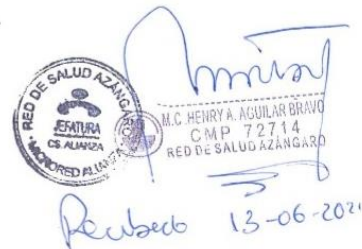 RED DE SALUD AZÁNGARO
JEFATURA
CS. ALIANZA
MICRORED ALIANZA
M.C. HENRY A. AGUILAR BRAVO
CMP 72714
RED DE SALUD AZÁNGARO
Recibido 13-06-2021